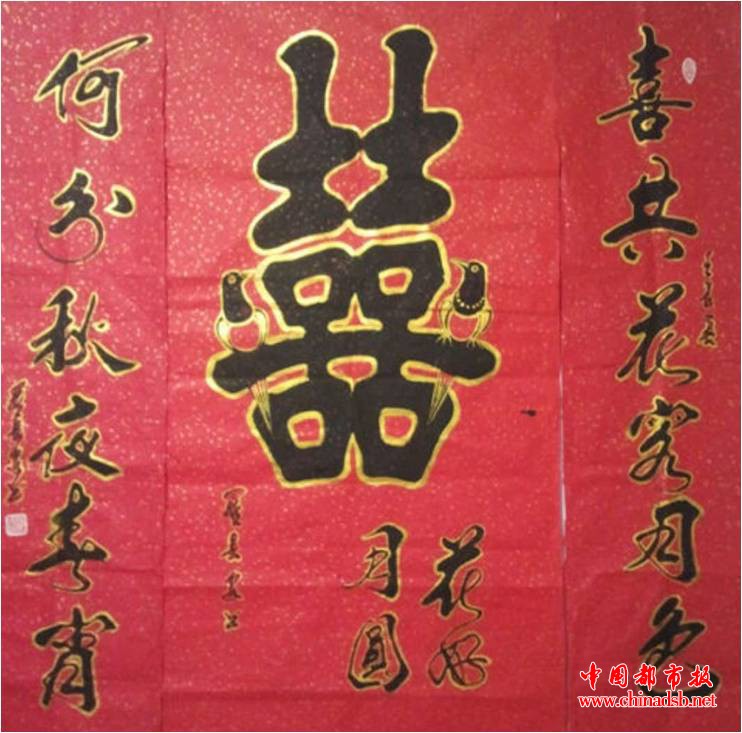 喜共花容月色
囍
花好
月圓
何分秋夜春宵
中国都市报
www.chinadsb.net